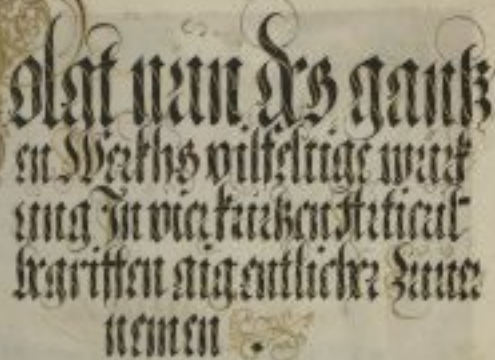 olgt nun des gantz
en Werkhs vilfeltige würk
ung In vier kurtzen Articul
begriffen aigentlicher zuuer
nemen .